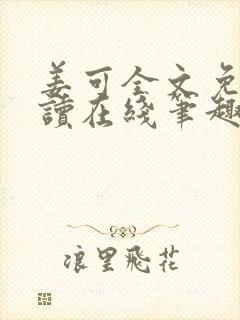 姜可全文免
讀在綫筆趣
浪里飛花